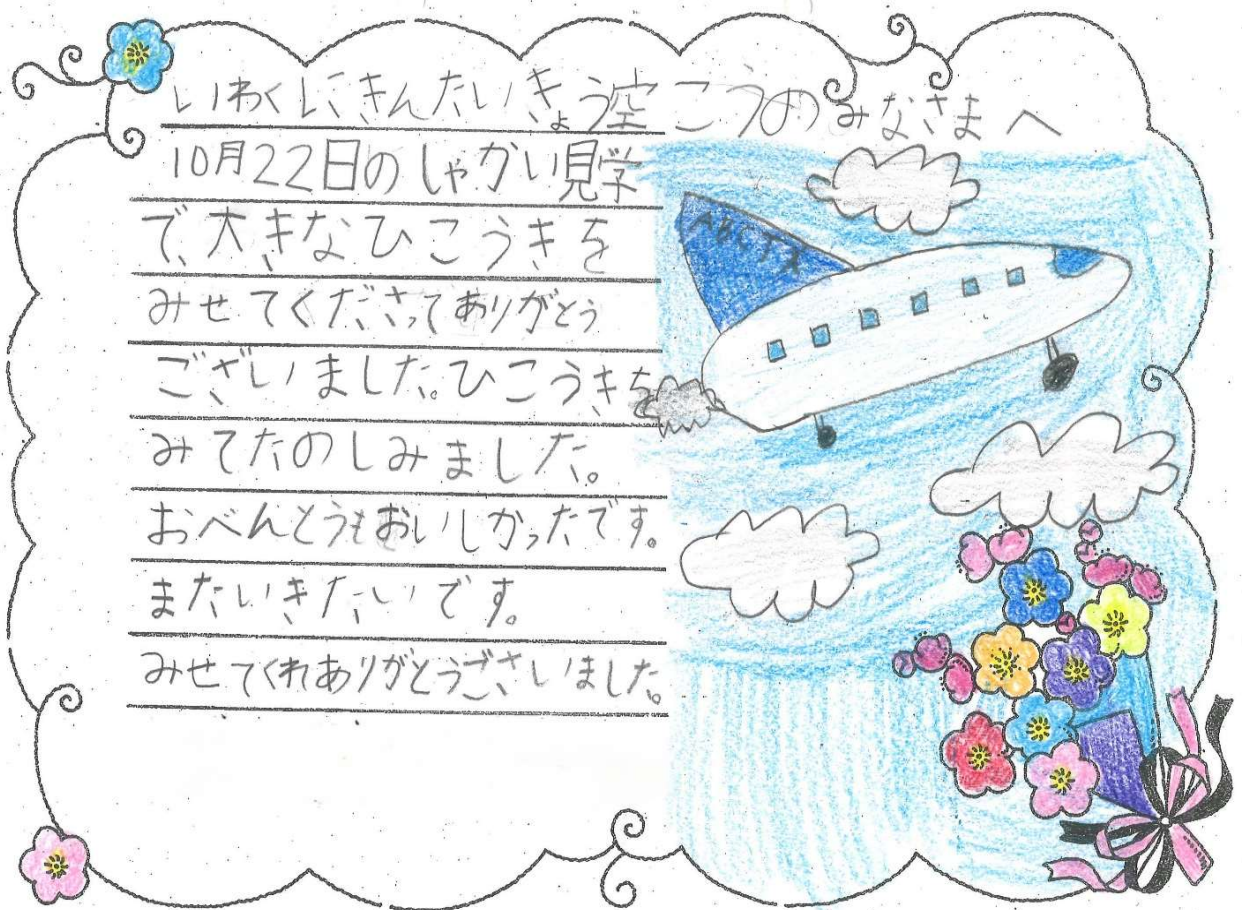 いわくにきんたいきょう空こうのみなさまへ
10月22日のしゃかい見学
で、大きなひこうきを
みせてくださってありがとう
ございました。ひこうきを
みてたのしみました。
おべんとうもおいしかったです。
またいきたいです。
みせてくれありがとうございました。